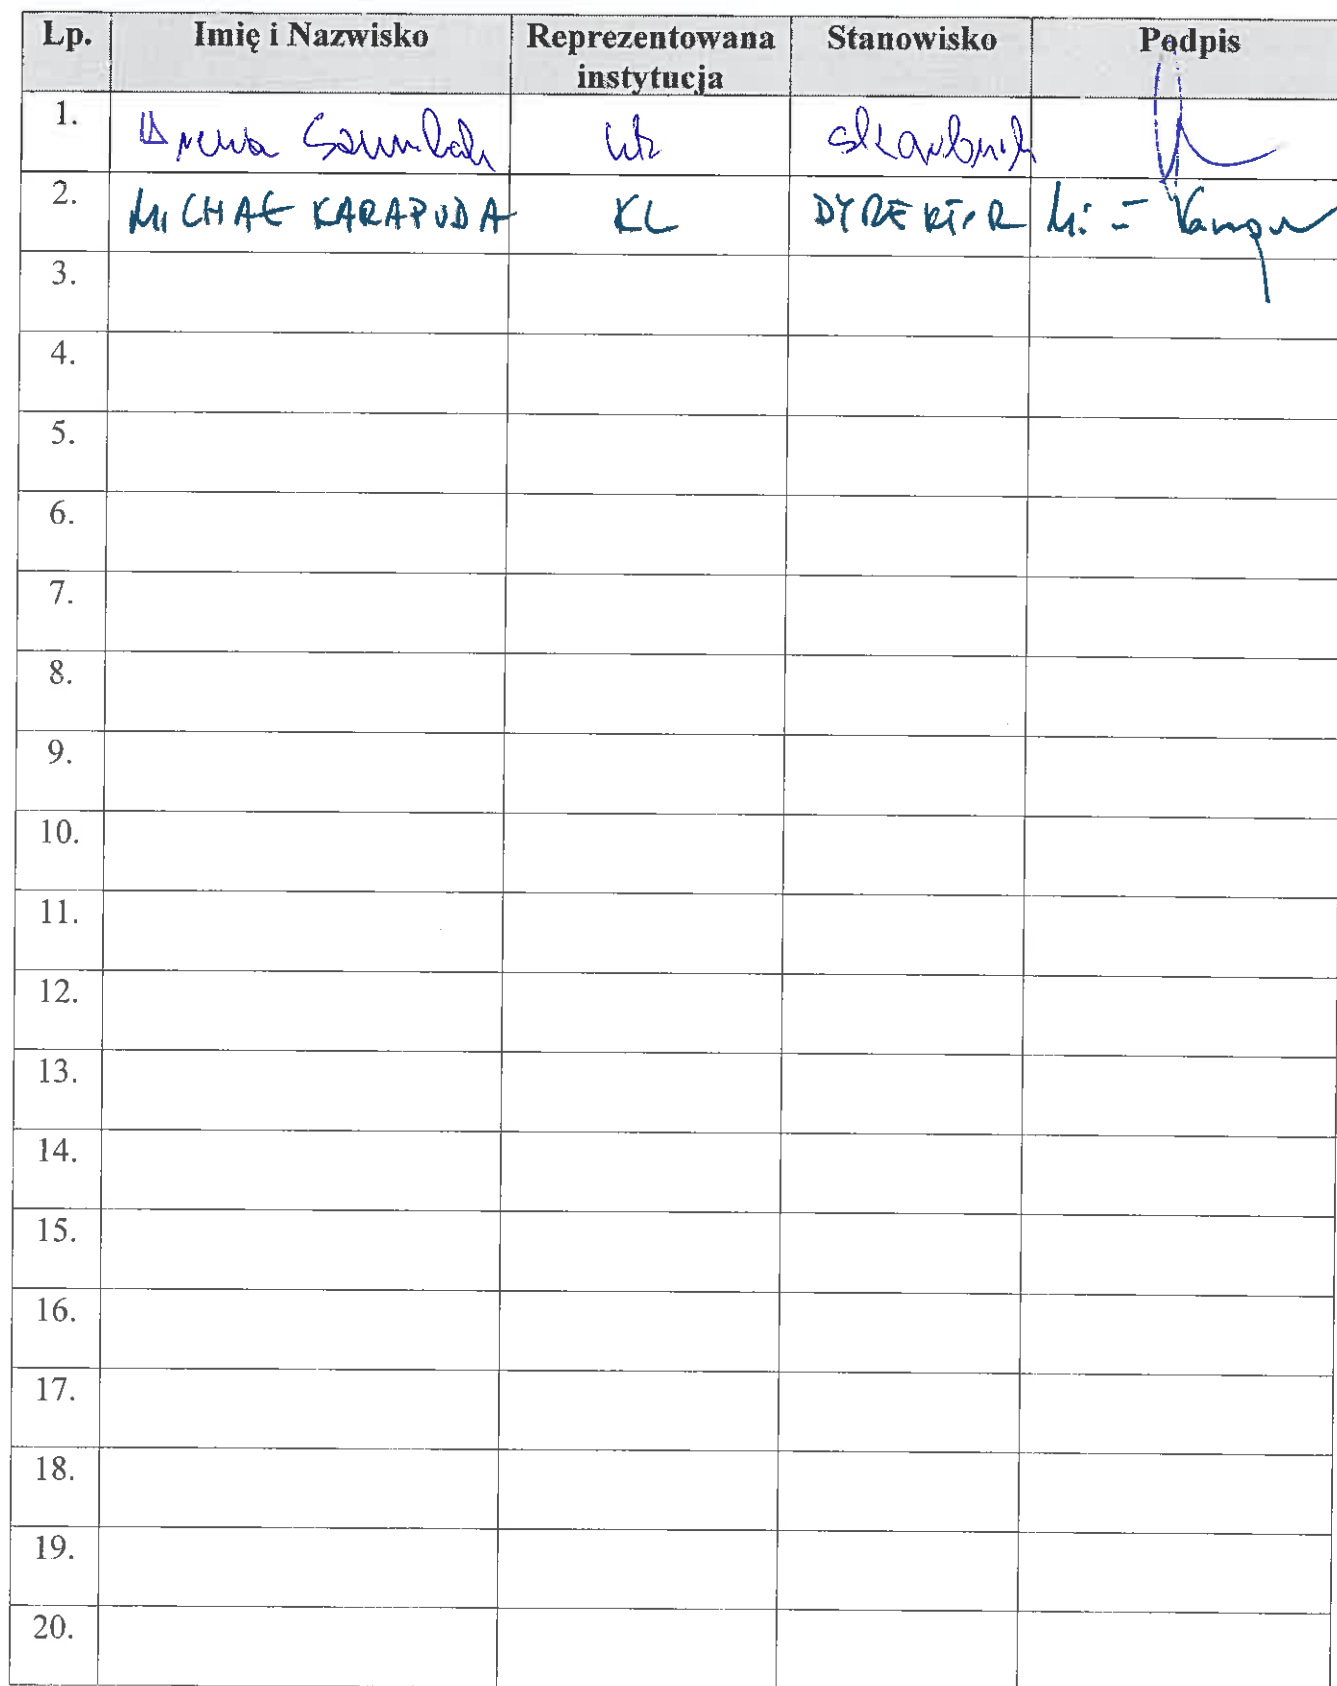 Lp. Imię i Nazwisko Reprezentowana instytucja Stanowisko Podpis
1. skarbnik
2. MICHAŁ KARAPUDA KL DYREKTOR
3.
4.
5.
6.
7.
8.
9.
10.
11.
12.
13.
14.
15.
16.
17.
18.
19.
20.